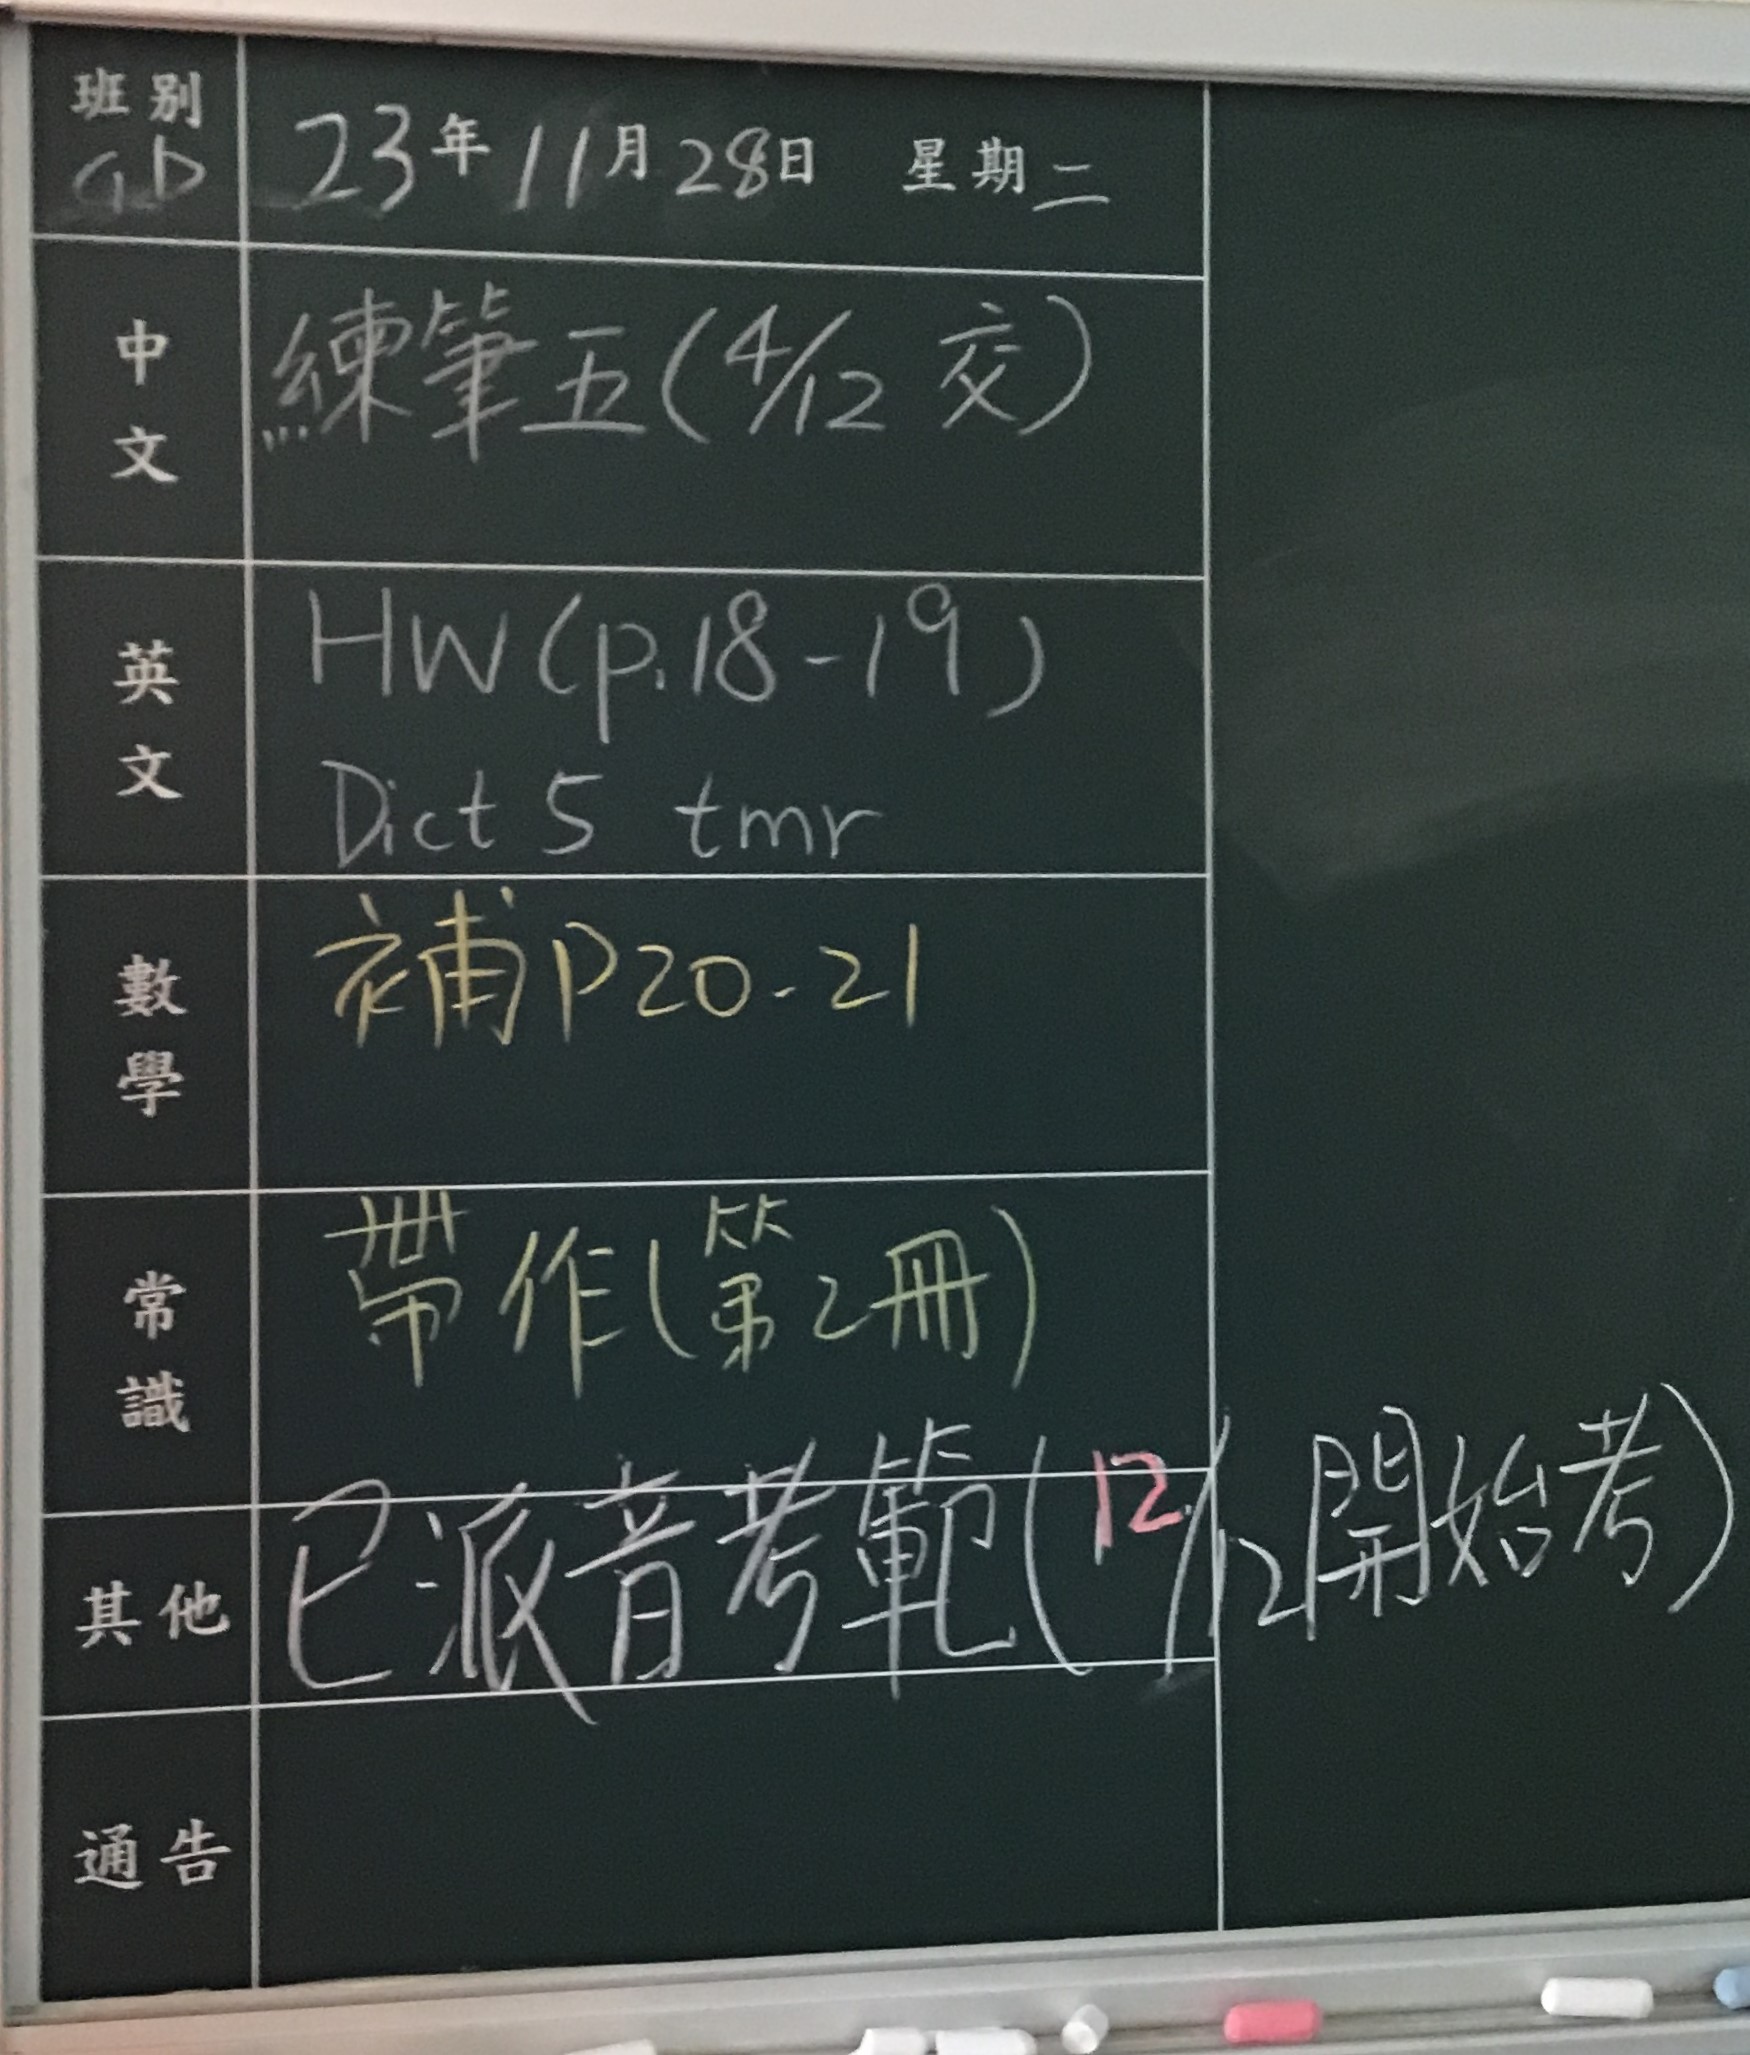 班別
23年11月28日 星期二
中文
練筆五(4/12 交)
英文
HW(p.18-19)
Dict 5 tmr
數學
補P20-21
常識
帶作(第2冊)
其他
已派音考範(12/12開始考)
通告